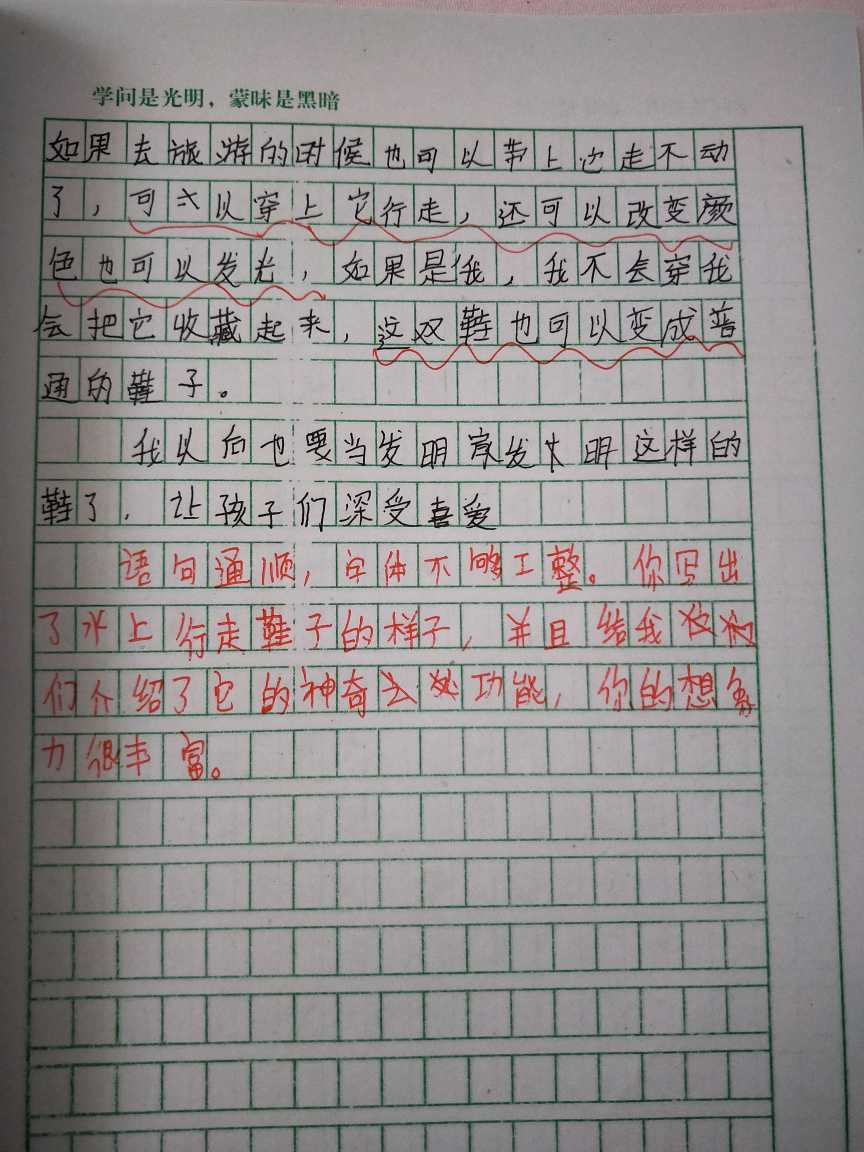 学问是光明，蒙昧是黑暗
如果去旅游的时候也可以带上它走不动
了，可以穿上它行走，还可以改变颜
色也可以发光，如果是我，我不会穿我
会把它收藏起来，这双鞋也可以变成普
通的鞋子。
我以后也要当发明家发明这样的
鞋了，让孩子们深受喜爱
语句通顺，字体不够工整。你写出
了水上行走鞋子的样子，并且给我
们介绍了它的神奇功能，你的想象
力很丰富。